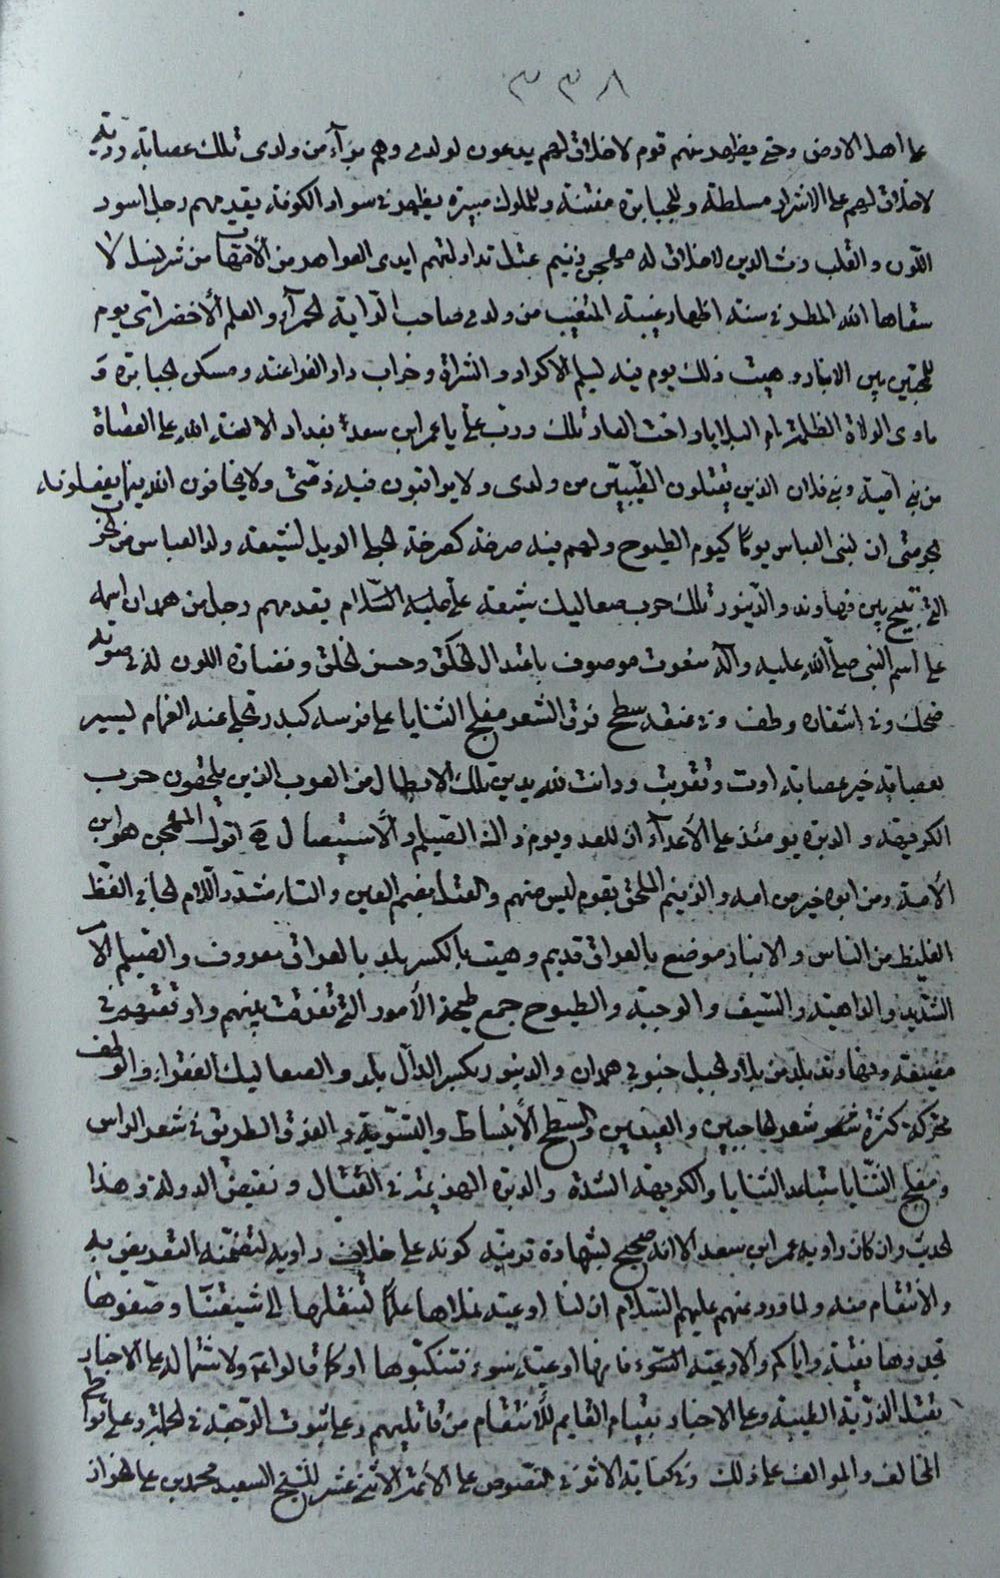 ٣٣٨
على اهل الارض وحتى يظهر منهم قوم لا خلاق لهم يدعون لولدى وهم براء من ولدى تلك عصابة رديّة
لا خلاق لهم على الاشرار مسلطة وللجبابرة مفتنة وللملوك مبيرة يظهر فى سواد الكوفة يقدمهم رجل اسود
اللون والقلب رث الدين لا خلاق له مهجن زنيم عتل تداولتهم ايدى العواهر من الامهات من شر نسل لا
سقاها الله المطر فى سنة اظهار غيبة المتغيب من ولدى صاحب الراية الحمراء والعلم الأخضر اى يوم
للمخيبين بين الانبار وهيت ذلك يوم فيه صيلم الاكراد والشراة وخراب دار الفراعنة ومسكن الجبابرة و
ماوى الولاة الظلمة وام البلايا واخت العار تلك ورب على يا عمر ابن سعد بغداد الا لعنة الله على العصاة
من بنى امية وبنى فلان الذين يقتلون الطيبين من ولدى ولا يراقبون فيه ذمتى ولا يخافون الله فيما يفعلونه
بحرمتى ان لبنى العباس يوما كيوم الطموح ولهم فيه صرخة كصرخة الحبلى الويل لشيعة ولد العباس من الحرب
التى تنتج بين نهاوند والدينور تلك حرب صعاليك شيعة على عليه السلام يقدمهم رجل من همدان اسمه
على اسم النبى صلى الله عليه وآله منعوت موصوف باعتدال الخلق وحسن الخلق ونضارة اللون له فى صوته
ضحك وفى اشفاره وطف وفى عنقه سطح فرق الشعر مفلج الثنايا على فرسه كبدر تجلى عند الغمام يسير
بعصابة خير عصابة اوت وتقربت ودانت لله بدين تلك الابطال من العرب الذين يلحقون حرب
الكريهة والدبرة يومئذ على الأعداء ان للعدو يوم ذاك الصيلم والأستيصال اقول المهجن هو ابن
الأمة ومن ابوه خير من امه والزنيم الملحق بقوم ليس منهم والعتل بضم العين والتاء مشدد اللام الجافى الفظ
الغليظ من الناس والانبار موضع بالعراق قديم وهيت بالكسر بلد بالعراق معروف والصيلم الامر
الشديد والداهية والسيف والوجبة والطموح جمع الأمور التى تفرقت بينهم واوقعتهم فى
مضيقة ونهاوند بلد من بلاد الجبل جنوبى همدان والدينور بكسر الدال بلد والصعاليك الفقراء والوطف
محركة كثرة شعر الحاجبين والعينين والسطح الأنبساط والتسوية والفرق الطريق فى شعر الراس
ومفلج الثنايا متباعد الثنايا والكريهة الشدة والدبرة الهزيمة فى القتال ونقيض الدولة وهذا
الحديث وان كان راويه عمر ابن سعد الا انه صحيح لشهادة قرينة كونه على خلاف راويه لتضمنه التعريض به
والأنتقام منه ولما ورد عنهم عليهم السلام ان لنا اوعية نملاها علما لتنقلها الى شيعتنا وصفوها
تجدوها نقية واياكم والاوعية السوء فانها اوعية سوء فتنكبوها او كما قالوا ع ولاشتماله على الاخبار
بقتل الذرية الطيبة وعلى الاخبار بقيام القايم للأنتقام من قاتليهم وعلى ثبوت الرجعة فى الجملة وعلى تواطى
المخالف والموالف على ذلك وفى كفاية الاثر فى النصوص على الأئمة الاثنى عشر للشيخ السعيد محمد بن على الخزاز